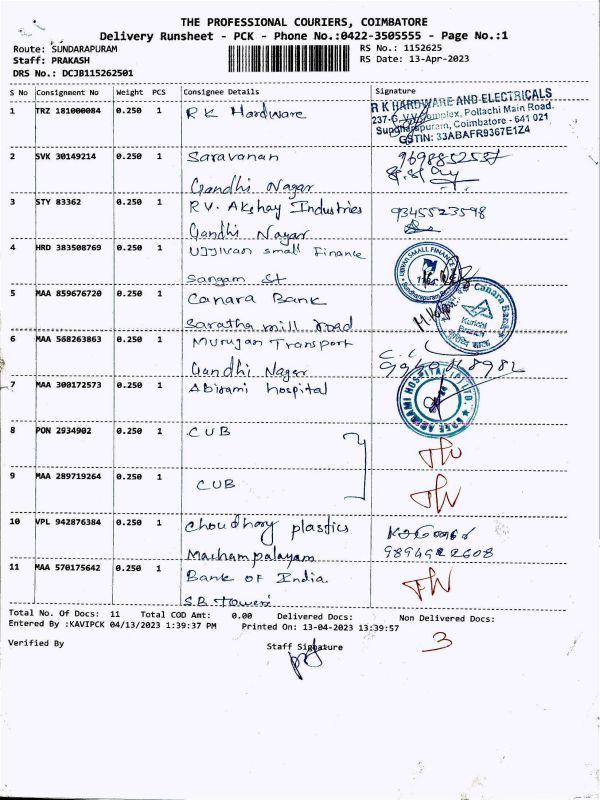 THE PROFESSIONAL COURIERS, COIMBATORE
Delivery Runsheet - PCK - Phone No.:0422-3505555 - Page No.:1
Route: SUNDARAPURAM RS No.: 1152625
Staff: PRAKASH RS Date: 13-Apr-2023
DRS No.: DCJB115262501
S No Consignment No Weight PCS Consignee Details Signature
1 TRZ 181000084 0.250 1 R K Hardware
R K HARDWARE AND ELECTRICALS
237-G, V.V.Complex, Pollachi Main Road.
Sundharapuram, Coimbatore - 641 021
GSTIN: 33ABAFR9367E1Z4
2 SVK 30149214 0.250 1 Saravanan
Gandhi Nagar
3 STY 83362 0.250 1 R.V. Akshay Industries 9345523598
Gandhi Nagar
4 HRD 383508769 0.250 1 Ujjivan small Finance
Sangam St
5 MAA 859676720 0.250 1 Canara Bank
Canara Bank
Kurichi
Branch
Saratha mill road
6 MAA 568263863 0.250 1 Murugan Transport
Gandhi Nagar
7 MAA 300172573 0.250 1 Abirami hospital
8 PON 2934902 0.250 1 CUB
9 MAA 289719264 0.250 1 CUB
10 VPL 942876384 0.250 1 Choudhary plastics
Machampalayam 9894922608
11 MAA 570175642 0.250 1 Bank of India
S.B. Towers
Total No. Of Docs: 11 Total COD Amt: 0.00 Delivered Docs: Non Delivered Docs:
Entered By :KAVIPCK 04/13/2023 1:39:37 PM Printed On: 13-04-2023 13:39:57
3
Verified By Staff Signature